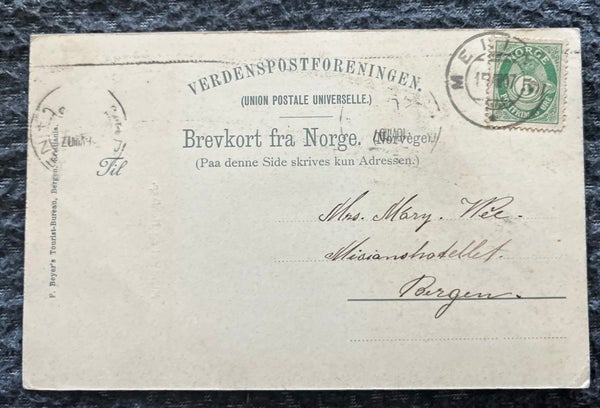 VERDENSPOSTFORENINGEN.
(UNION POSTALE UNIVERSELLE.)
Brevkort frå Norge. (Norvège.)
(Paa denne Side skrives kun Adressen.)
NORGE
5
Til
Mrs. Mary.
Misianshotellet.
Bergen.
F. Beyer's Tourist-Bureau, Bergen, Kristiania.